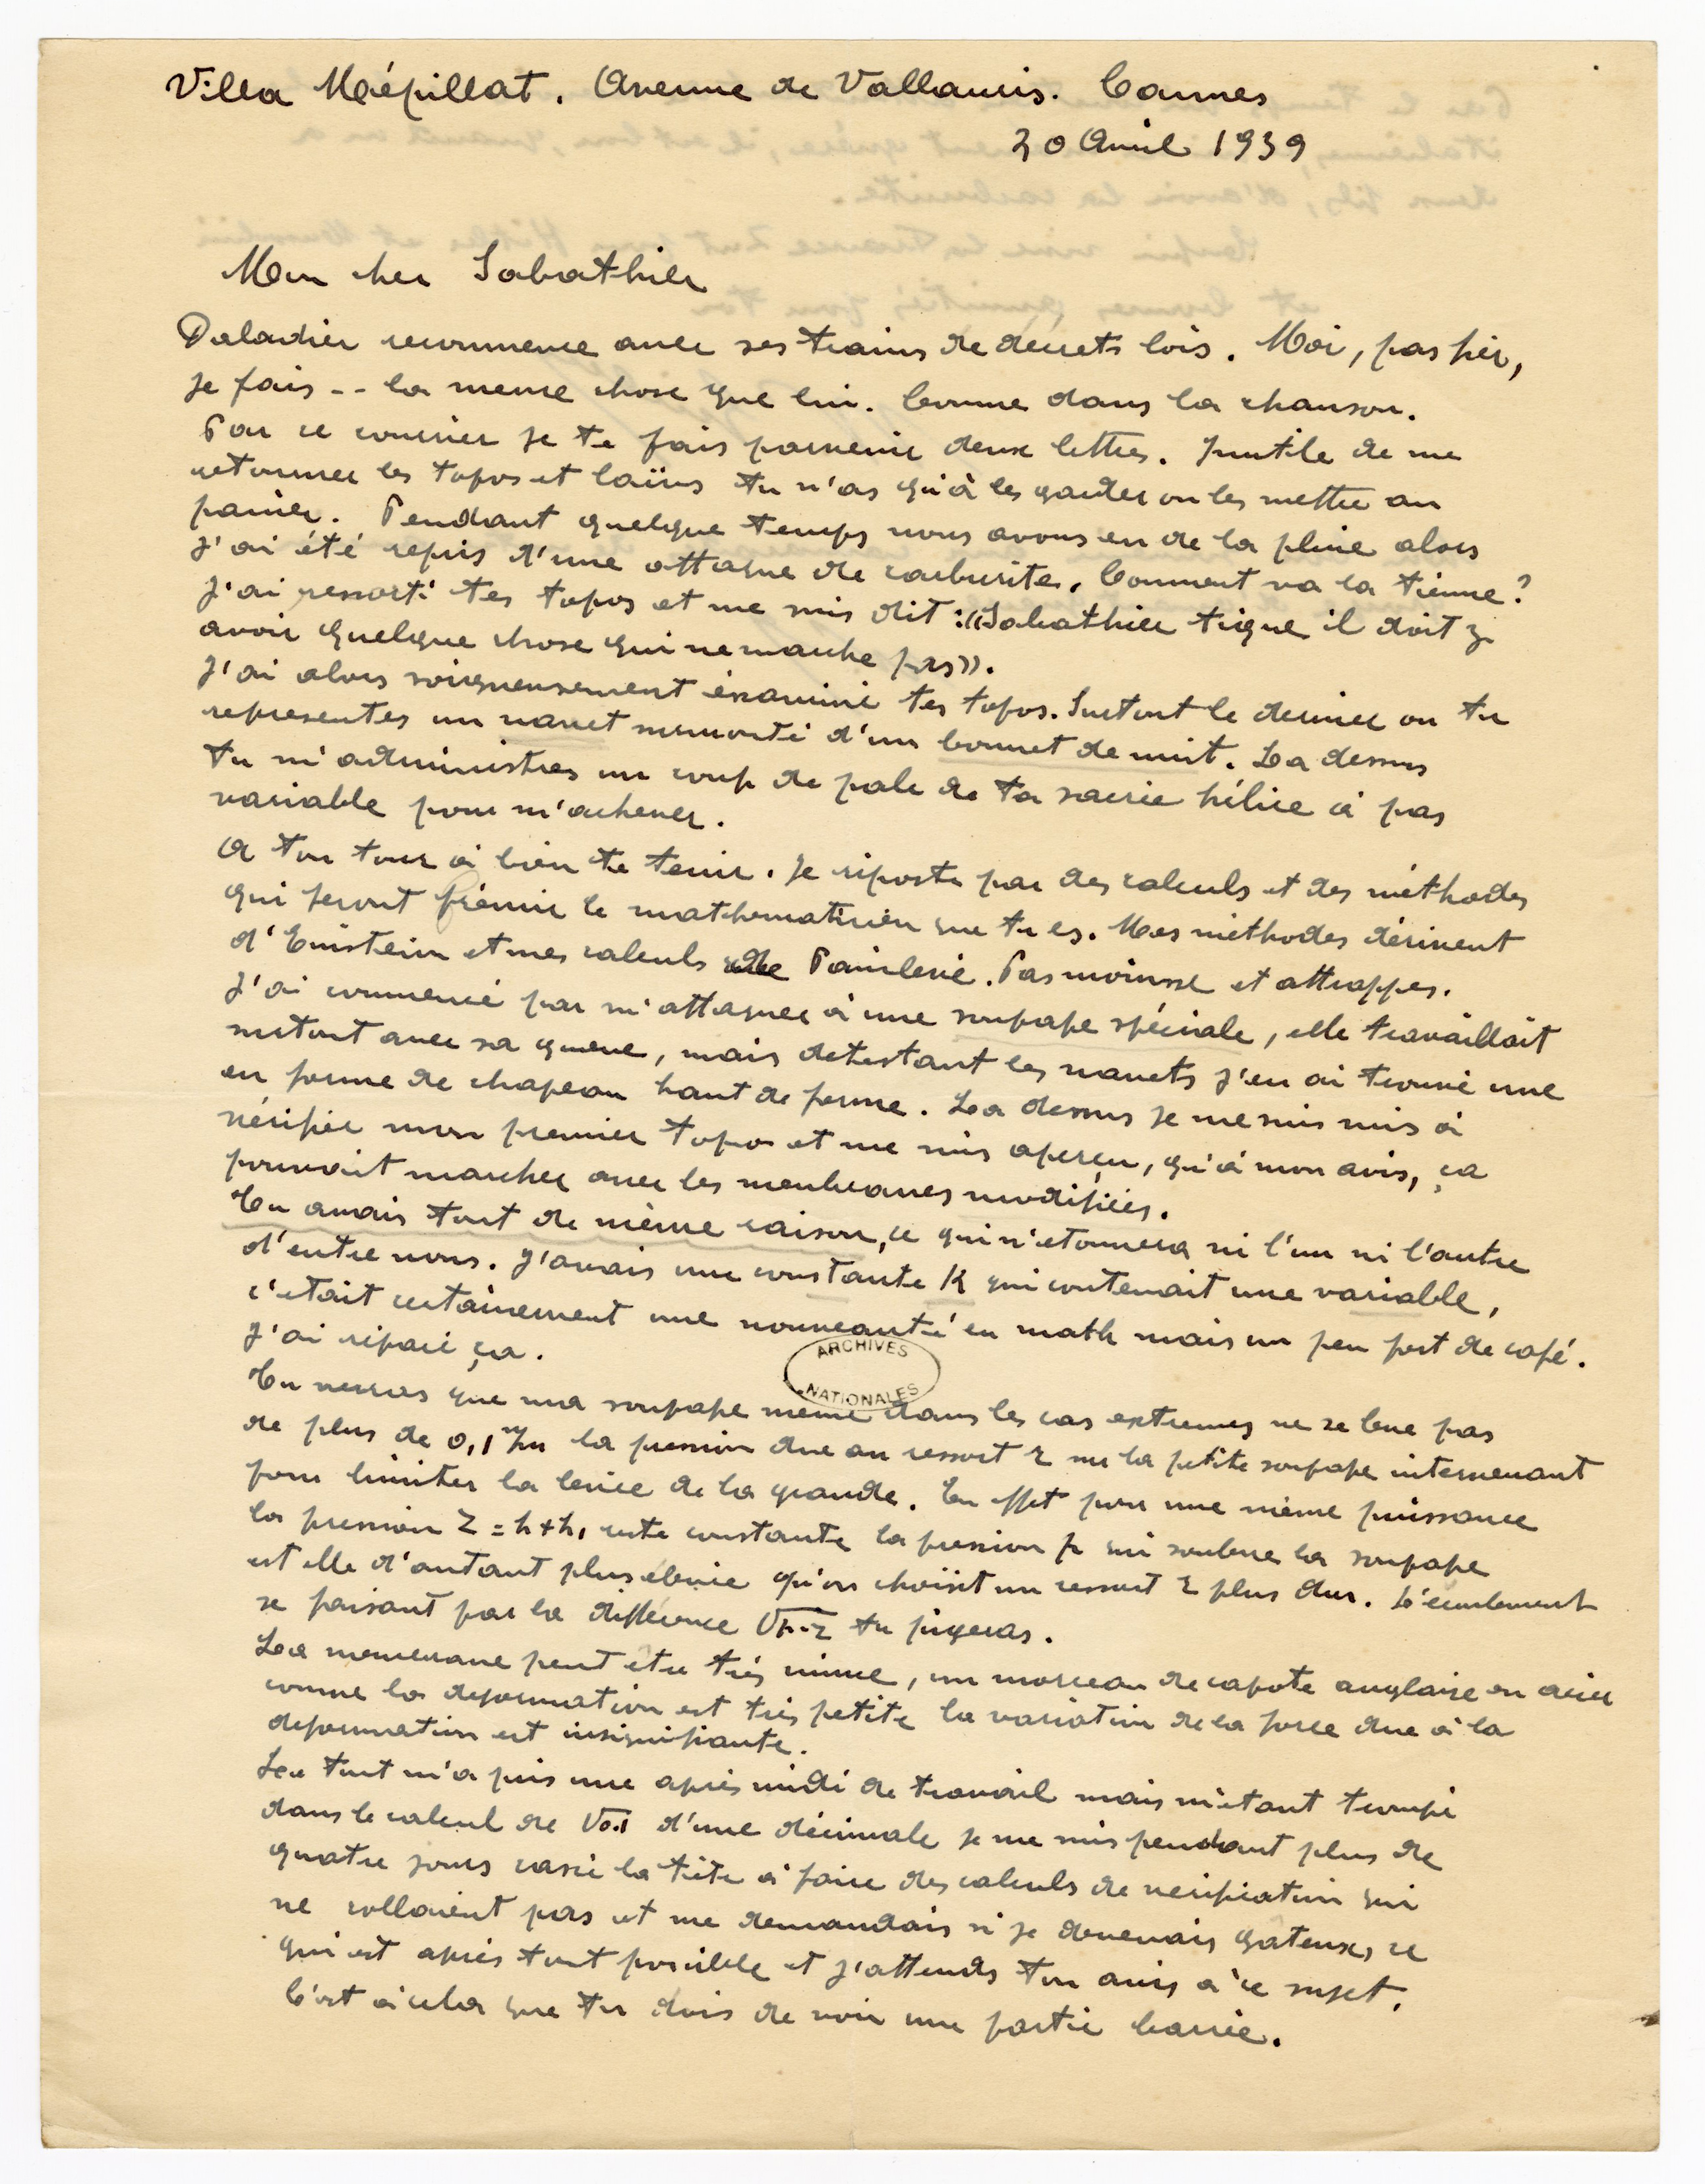 Villa Mépillat. Avenue de Vallauris. Cannes
20 Avril 1939
Mon cher Sabathier
Daladier recommence avec ses trains de décrets lois. Moi, pas fier,
je fais -- la meme chose que lui. Comme dans la chanson.
Par ce courrier je te fais parvenir deux lettres. Inutile de me
retourner les topos et laïus tu n'as qu'à les garder ou les mettre au
panier. Pendant quelque temps nous avons eu de la pluie alors
j'ai été repris d'une attaque de carburite. Comment va la tienne?
J'ai ressorti tes topos et me suis dit : «Sabathier tique il doit y
avoir quelque chose qui ne marche pas».
J'ai alors soigneusement éxaminé tes topos. Surtout le dernier ou tu
representes un navet surmonté d'un bonnet de nuit. La dessus
tu m'administres un coup de pale de ta sacrée hélice à pas
variable pour m'achever.
A ton tour à bien te tenir. Je riposte par des calculs et des méthodes
qui feront frémir le mathematicien que tu es. Mes méthodes dérivent
d'Einstein et mes calculs de Painlevé. Pas moinsse et attrappes.
J'ai commencé par m'attaquer à une soupape spéciale, elle travaillait
surtout avec sa queue, mais detestant les navets j'en ai trouvé une
en forme de chapeau haut de forme. La dessus je me suis mis à
vérifier mon premier topo et me suis aperçu, qu'à mon avis, ça
pouvait marcher avec les membranes modifiées.
Tu avais tout de même raison, ce qui n'etonnera ni l'un ni l'autre
d'entre nous. J'avais une constante K qui contenait une variable,
c'etait certainement une nouveauté en math mais un peu fort de café.
J'ai réparé ça.
ARCHIVES
NATIONALES
Tu verras que ma soupape meme dans les cas extremes ne se leve pas
de plus de 0,1 m/m la pression due au ressort r sur la petite soupape intervenant
pour limiter la levée de la grande. En effet pour une même puissance
la pression Z = h + h1 reste constante la pression p qui souleve la soupape
est elle d'autant plus élevée qu'on choisit un ressort r plus dur. L'écoulement
se faisant par la différence √p-z tu pigeras.
La membrane peut etre très mince, un morceau de capote anglaise en acier
comme la deformation est très petite la variation de la force due à la
deformation est insignifiante.
Le tout m'a pris une après midi de travail mais m'etant trompé
dans le calcul de √0.1 d'une décimale je me suis pendant plus de
quatre jours cassé la tête à faire des calculs de verification qui
ne collaient pas et me demandais si je devenais gateux, ce
qui est après tout possible et j'attends ton avis à ce sujet.
C'est à cela que tu dois de voir une partie barrée.